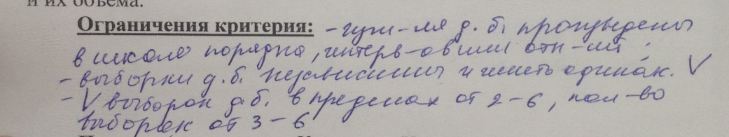 и их объема.
Ограничения критерия: - изм-ия д. б. проведены
в шкале порядка, интерв-ов или отн-ий.
- выборки д. б. независимы и иметь одинак. V
- V выборок д.б. в пределах от 2-6, кол-во
выборок от 3-6